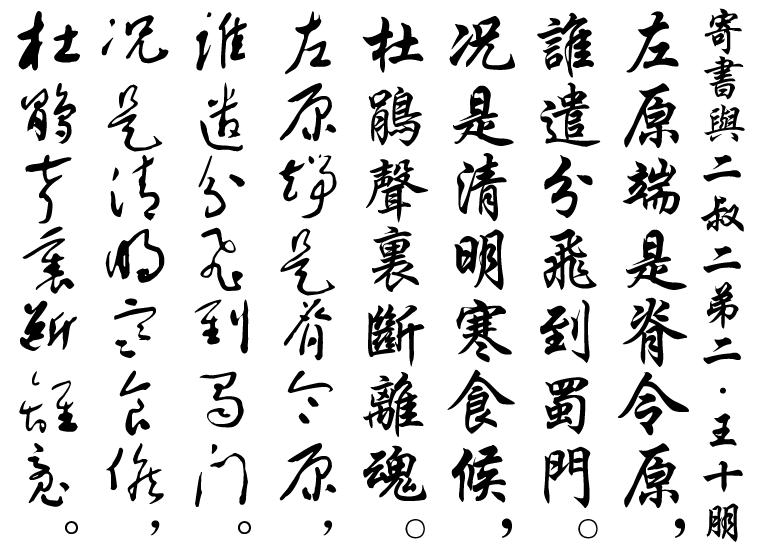 寄書與二叔二弟二·王十朋
左原端是脊令原，
誰遣分飛到蜀門。
況是清明寒食候，
杜鵑聲裏斷離魂。
左原端是脊令原，
誰遣分飛到蜀門。
況是清明寒食候，
杜鵑聲裏斷離魂。